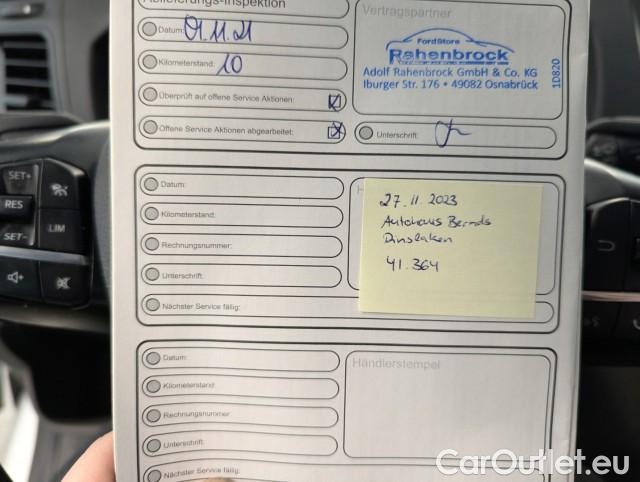 Ablieferungs-Inspektion
Datum: 01.11.21
Kilometerstand: 10
Überprüft auf offene Service Aktionen:
Offene Service Aktionen abgearbeitet:
Vertragspartner
FordStore
Rahenbrock
Adolf Rahenbrock GmbH & Co. KG
Iburger Str. 176 • 49082 Osnabrück
1D820
Unterschrift:
Datum:
Kilometerstand:
Rechnungsnummer:
Unterschrift:
Nächster Service fällig:
H
27.11.2023
Autohaus Bernds
Dinslaken
41.364
Datum:
Kilometerstand:
Rechnungsnummer:
Unterschrift:
Nächster Service fällig:
Händlerstempel
SET+
RES
SET-
LIM
CarOutlet.eu